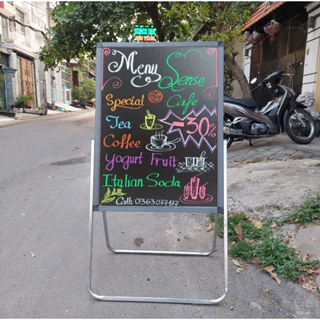 Menu Sense
Special Cafe
Tea -30%
Coffee
Yogurt Fruit
Italian Soda
Call: 0363077177